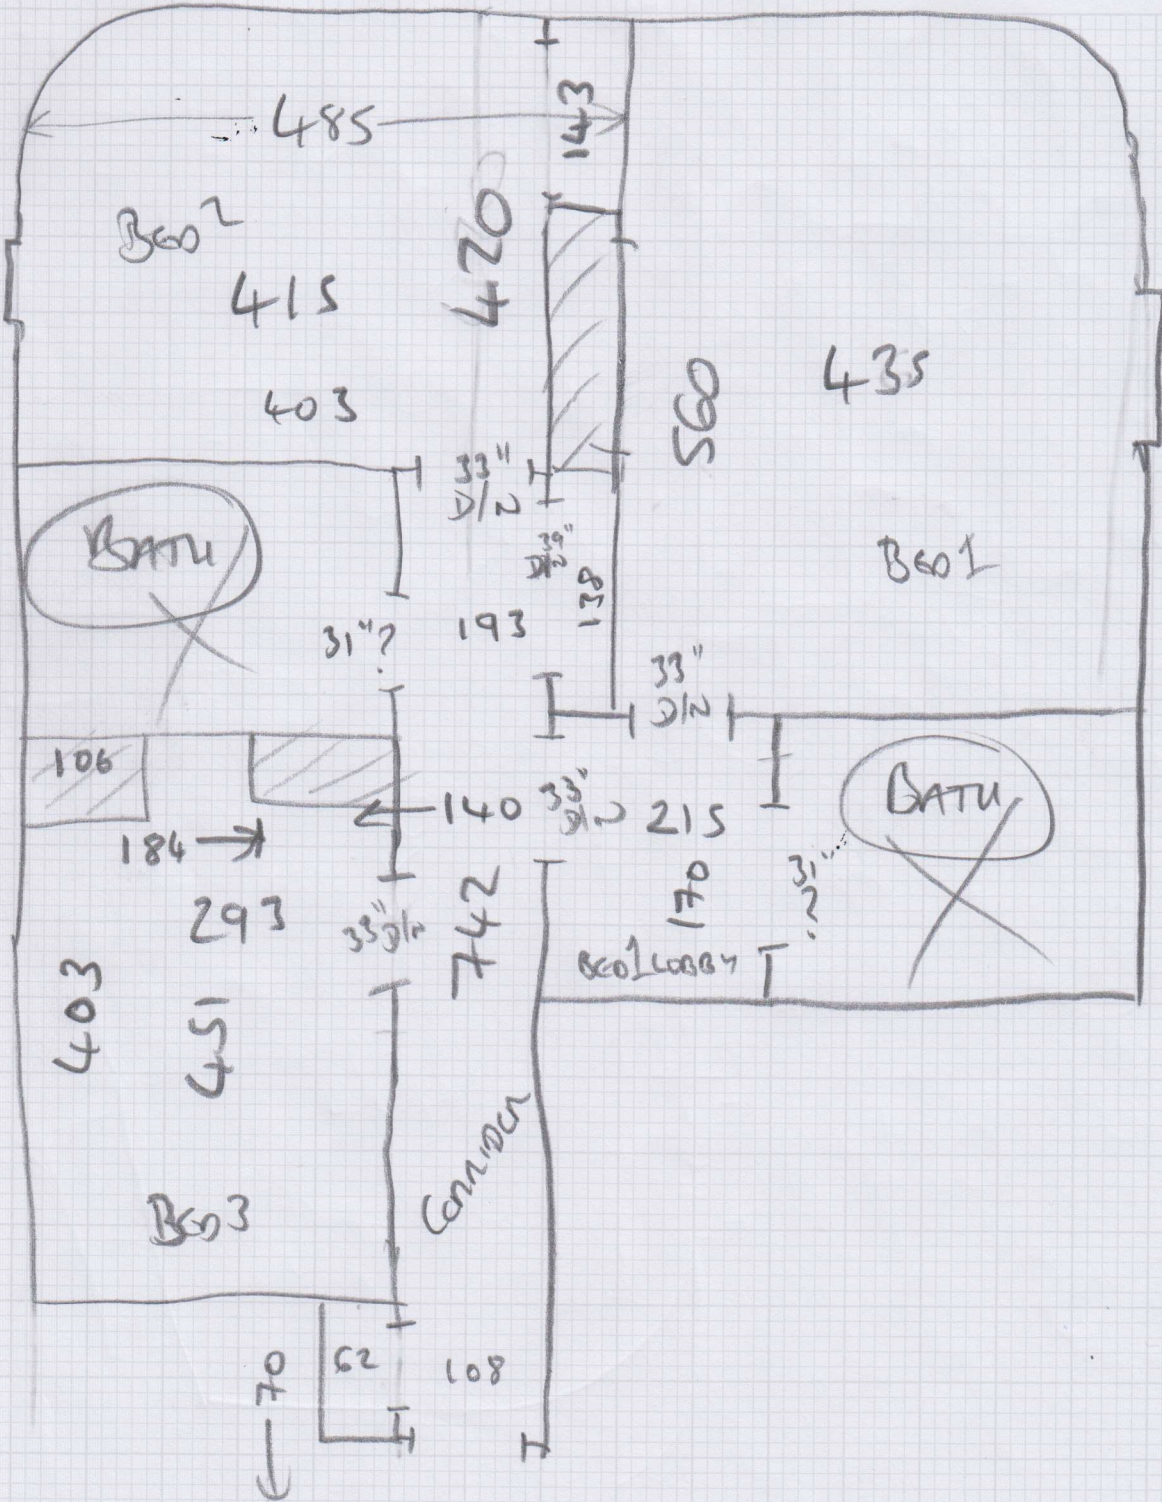 485
143
BED 2
420
415
435
560
403
33"
D/N
BATH
BED 1
138
31"?
193
33"
D/N
106
140
33"
D/N
215
BATH
184
31"
?
293
33"
D/N
742
170
BED 1 LOBBY
403
451
CORRIDOR
BED 3
70
62
108